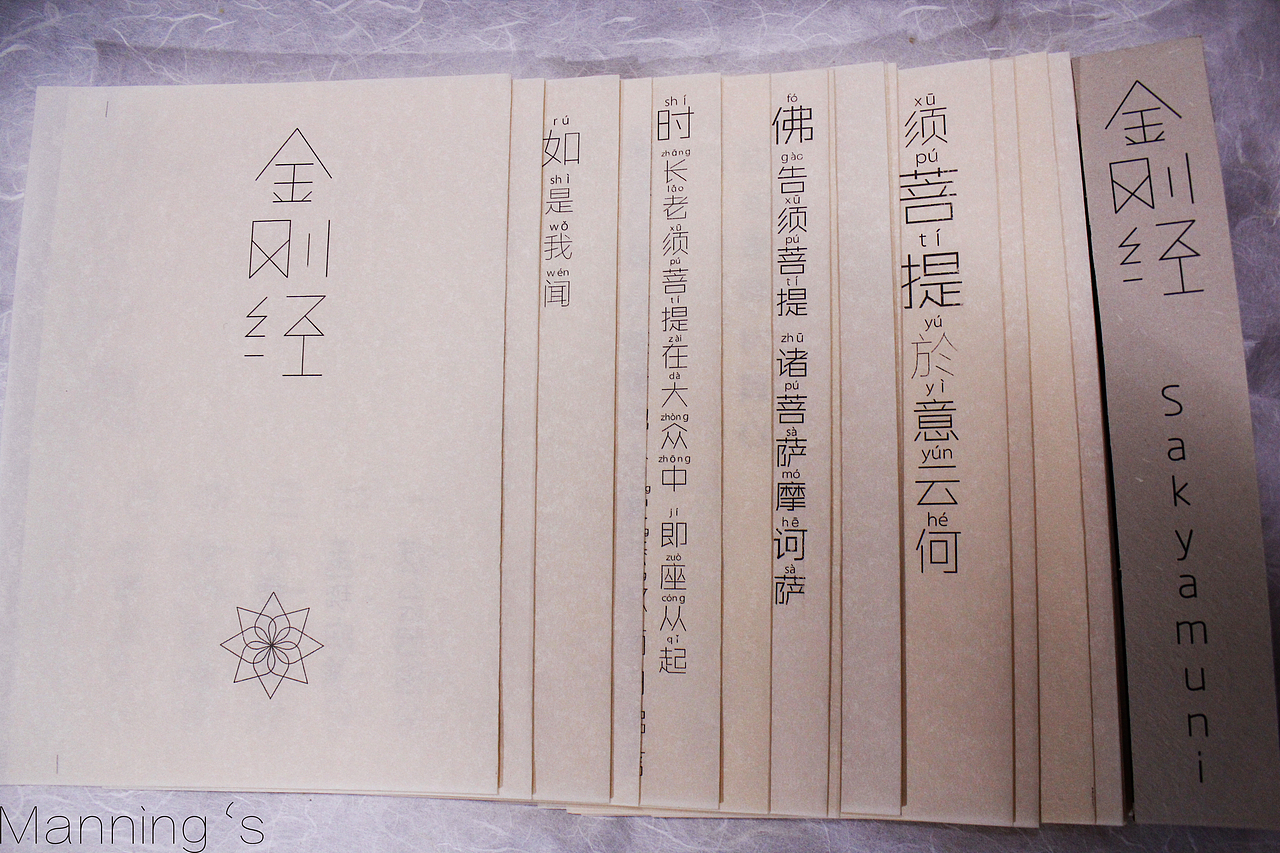 金刚经
rú shì wǒ wén
如是我闻
shí zhǎng lǎo xū pú tí zài dà zhòng zhōng jí zuò cóng qǐ
时长老须菩提在大众中即座从起
fó gào xū pú tí zhū pú sà mó hē sà
佛告须菩提诸菩萨摩诃萨
xū pú tí yú yì yún hé
须菩提於意云何
金刚经
Sakyamuni
Manning‘s